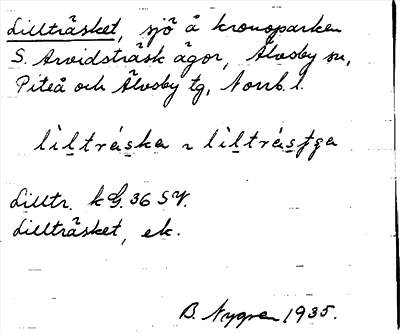 Lillträsket, sjö å kronoparken
S. Arvidsträsk ägor, Älvsby sn,
Piteå och Älvsby tg, Norrb. l.
lìltráska ~ lìltrásʃga
Lilltr. kG. 36 SV.
Lillträsket, ek.
B. Nygren 1935.